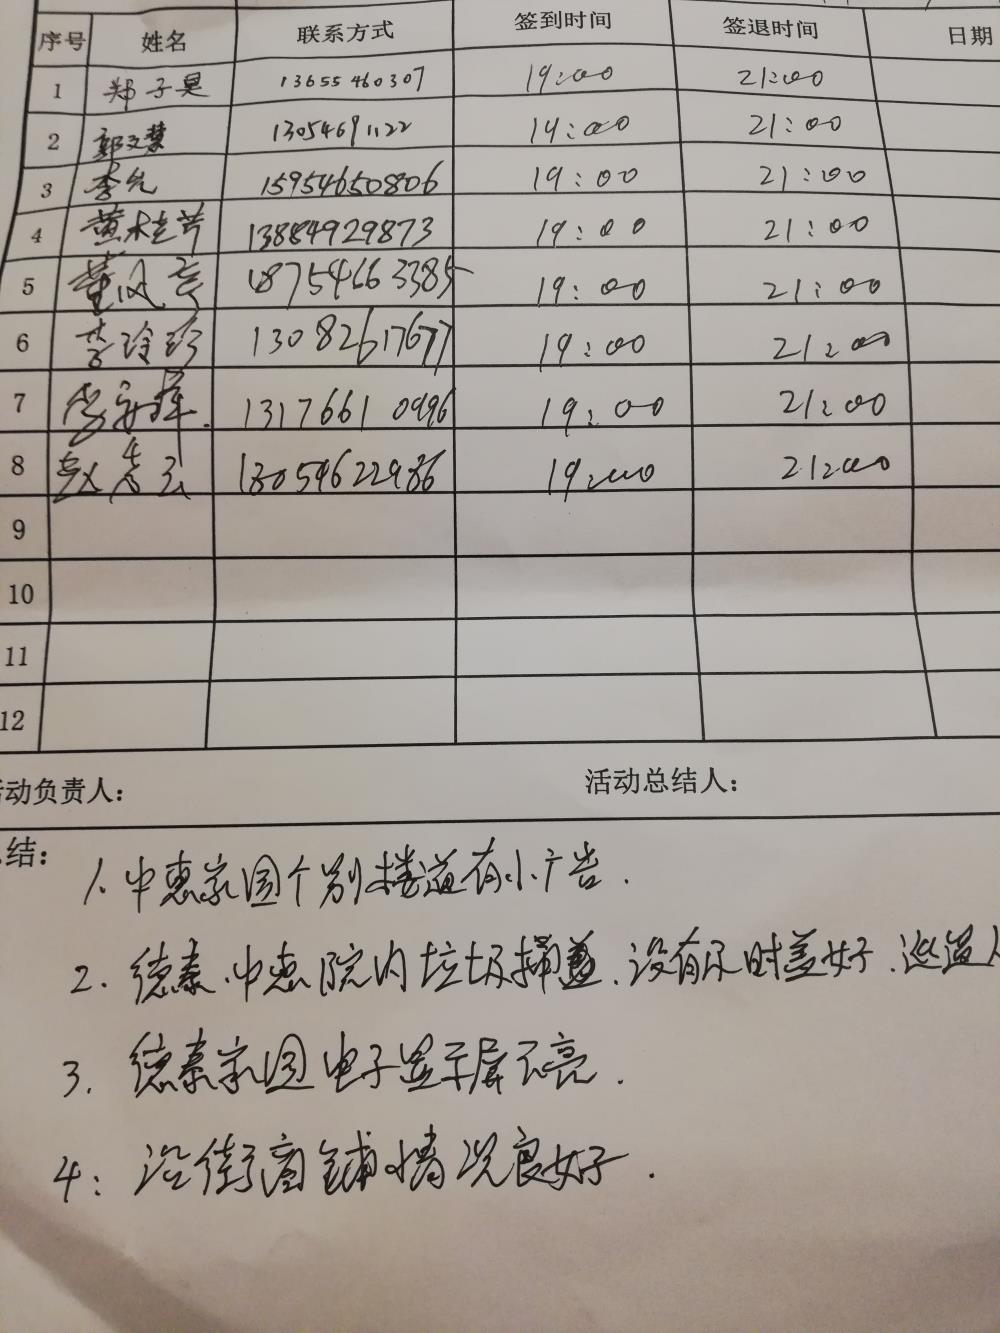 序号 姓名 联系方式 签到时间 签退时间 日期
1 郑子昊 13655460307 19:00 21:00
2 郭文慧 13054691122 19:00 21:00
3 李允 15954650806 19:00 21:00
4 黄木兰芹 13884929873 19:00 21:00
5 董凤 18754663385 19:00 21:00
6 李玲珍 13082617677 19:00 21:00
7 13176610996 19:00 21:00
8 赵秀玉 13054622986 19:00 21:00
9
10
11
12
活动负责人: 活动总结人:
结:
1. 中惠家园个别楼道有小广告.
2. 德泰.中惠院内垃圾桶盖.没有及时盖好.巡逻人
3. 德泰家园电子显示屏不亮.
4: 沿街商铺情况良好.